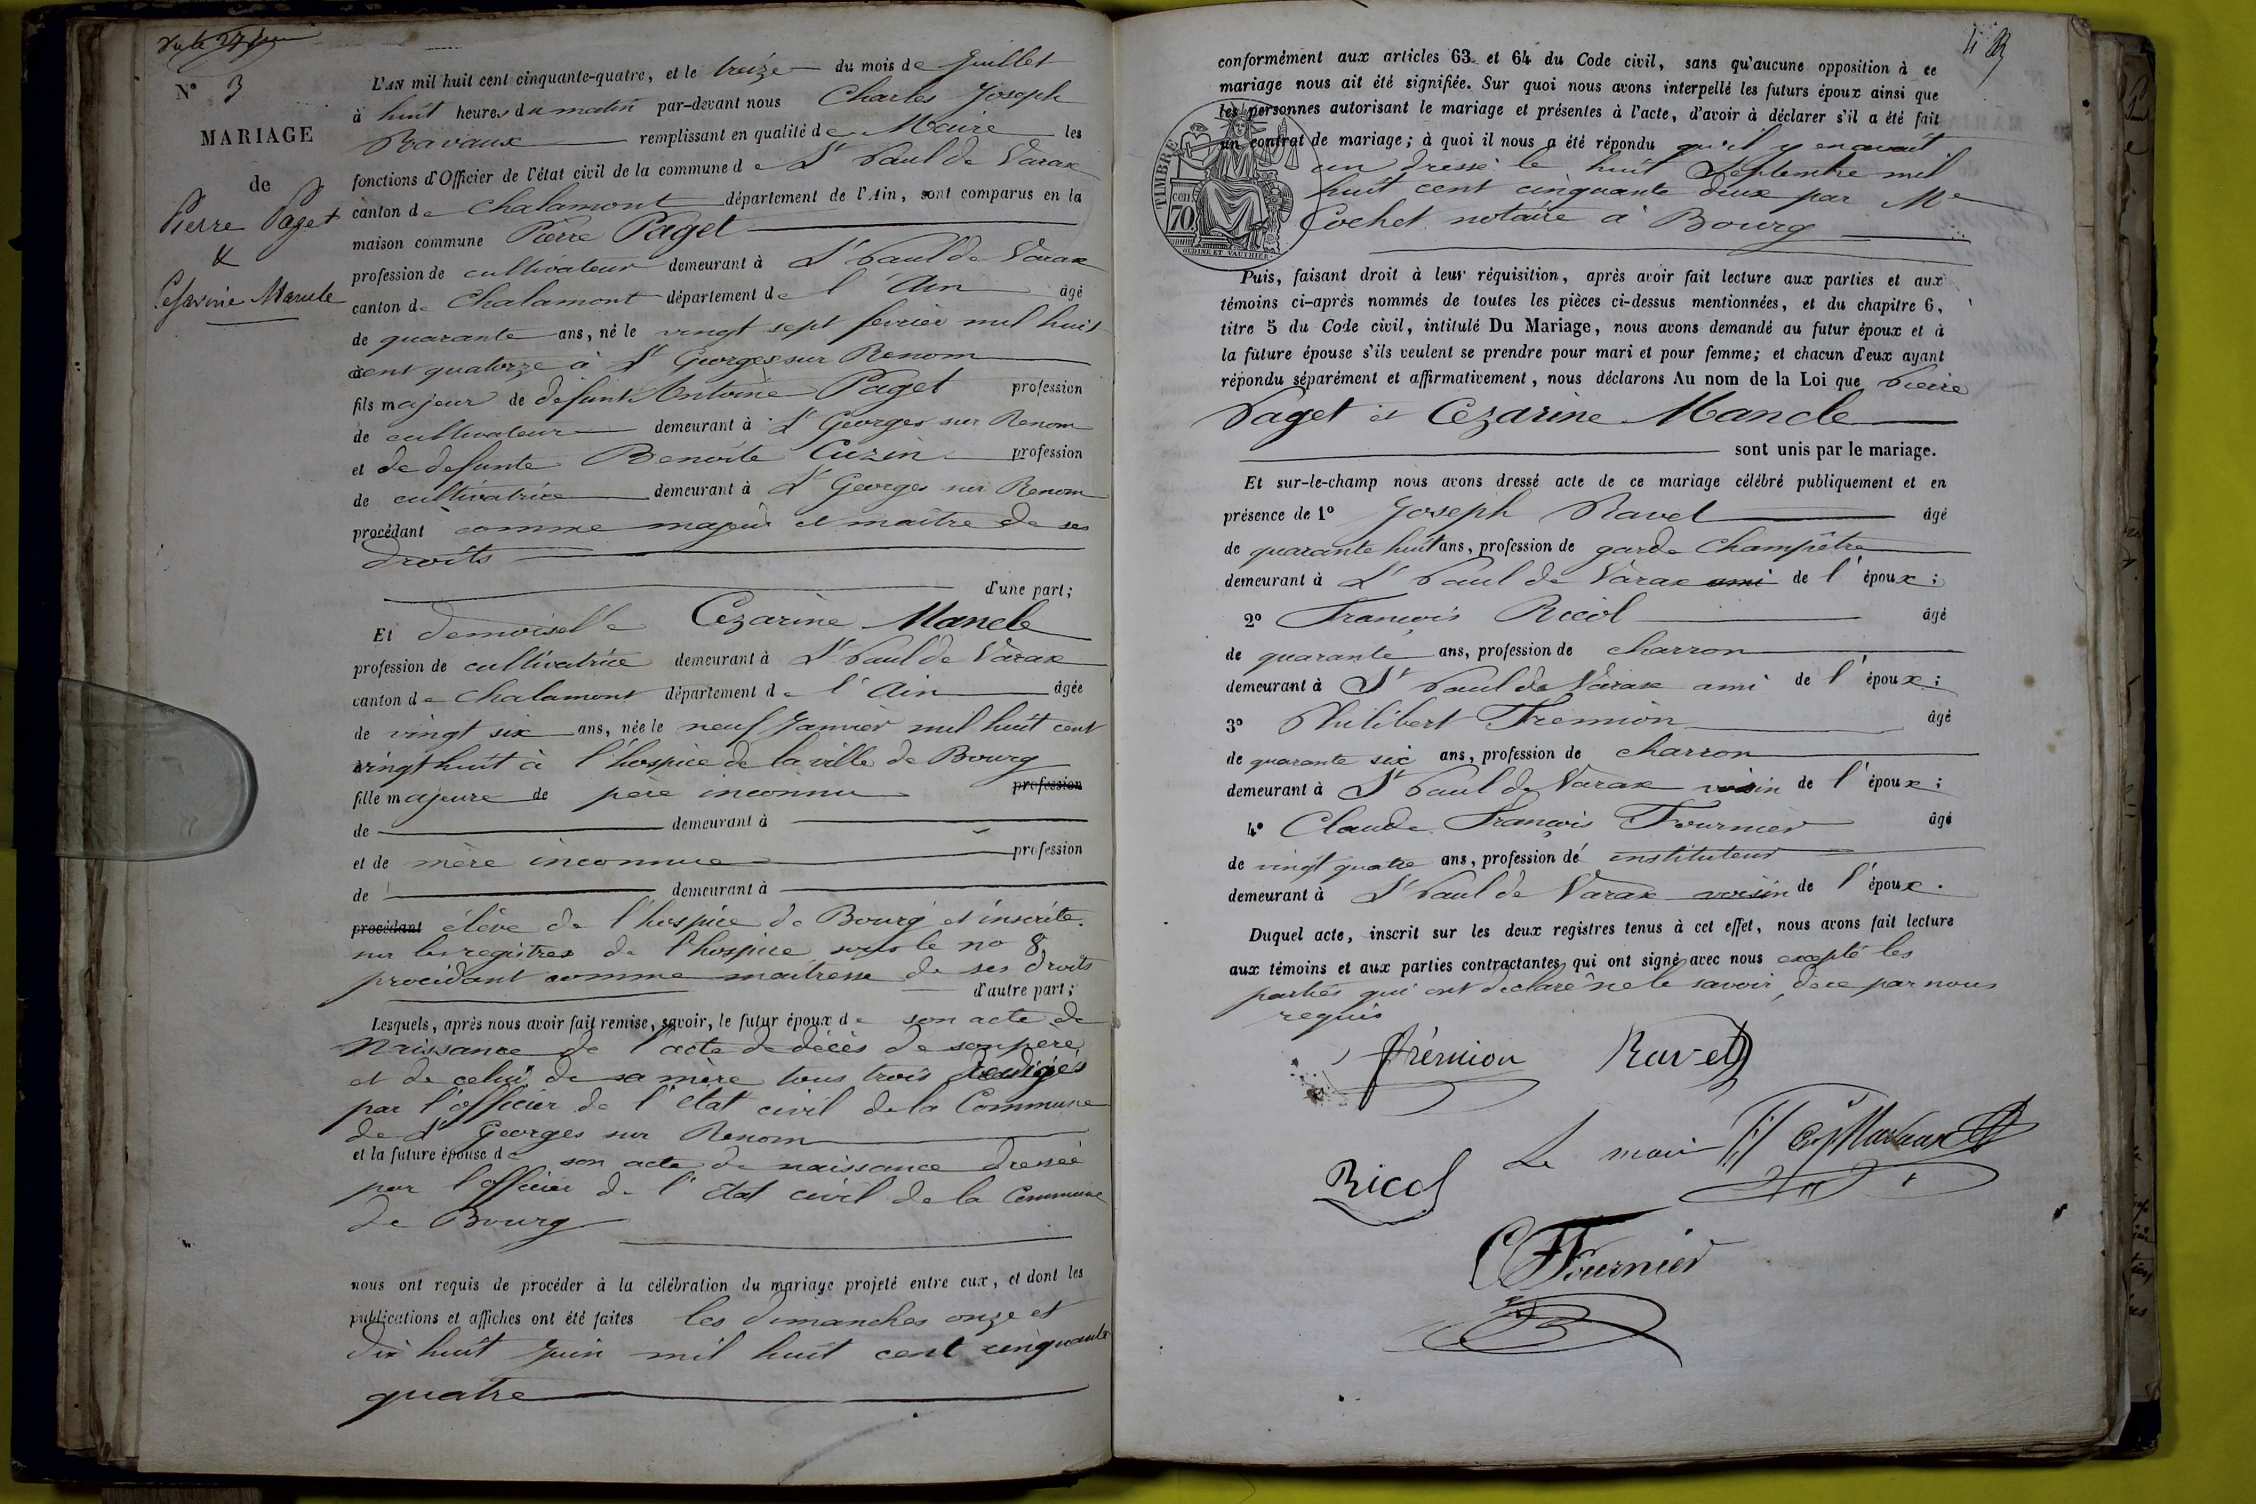 N° 3
MARIAGE
de
Pierre Paget
&
Cesarine Mancle
L'AN mil huit cent cinquante-quatre, et le treize du mois de Juillet
à huit heures du matin par-devant nous Charles Joseph
Ravaux remplissant en qualité de Maire les
fonctions d'Officier de l'état civil de la commune de St Paul de Varax
canton de Chalamont département de l'Ain, sont comparus en la
maison commune Pierre Paget
profession de cultivateur demeurant à St Paul de Varax
canton de Chalamont département de l'Ain âgé
de quarante ans, né le vingt sept fevrier mil huit
cent quatorze à St Georges sur Renom
fils majeur de defunt Antoine Paget profession
de cultivateur demeurant à St Georges sur Renom
et de defunte Benoite Cuzin profession
de cultivatrice demeurant à St Georges sur Renom
procédant comme majeur et maitre de ses
droits
d'une part;
Et demoiselle Cezarine Mancle
profession de cultivatrice demeurant à St Paul de Varax
canton de Chalamont département de l'Ain âgée
de vingt six ans, née le neuf Janvier mil huit cent
vingt huit à l'hospice de la ville de Bourg
fille majeure de père inconnu profession
de demeurant à
et de mère inconnue profession
de demeurant à
procédant élève de l'hospice de Bourg et inscrite
sur les registres de l'hospice sous le no 8
procédant comme maitresse de ses droits
d'autre part;
Lesquels, après nous avoir fait remise, savoir, le futur époux de son acte de
Naissance de l'acte de décès de son père
et de celui de sa mère tous trois redigés
par l'officier de l'état civil de la Commune
de St Georges sur Renom
et la future épouse de son acte de naissance dressée
par l'officier de l'Etat civil de la Commune
de Bourg
nous ont requis de procéder à la célébration du mariage projeté entre eux, et dont les
publications et affiches ont été faites les dimanches onze et
dix huit Juin mil huit cent cinquante
quatre
conformément aux articles 63 et 64 du Code civil, sans qu'aucune opposition à ce
mariage nous ait été signifiée. Sur quoi nous avons interpellé les futurs époux ainsi que
les personnes autorisant le mariage et présentes à l'acte, d'avoir à déclarer s'il a été fait
un contrat de mariage; à quoi il nous a été répondu qu'il y en avait
un dressé le huit Septembre mil
huit cent cinquante deux par Me
Cochet notaire à Bourg
TIMBRE
70
cen
OUDINE ET VAUTHIER
Puis, faisant droit à leur réquisition, après avoir fait lecture aux parties et aux
témoins ci-après nommés de toutes les pièces ci-dessus mentionnées, et du chapitre 6,
titre 5 du Code civil, intitulé Du Mariage, nous avons demandé au futur époux et à
la future épouse s'ils veulent se prendre pour mari et pour femme; et chacun d'eux ayant
répondu séparément et affirmativement, nous déclarons Au nom de la Loi que Pierre
Paget et Cezarine Mancle
sont unis par le mariage.
Et sur-le-champ nous avons dressé acte de ce mariage célébré publiquement et en
présence de 1° Joseph Ravet âgé
de quarante huit ans, profession de garde Champêtre
demeurant à St Paul de Varax ami de l'époux;
2° François Ricol âgé
de quarante ans, profession de charron
demeurant à St Paul de Varax ami de l'époux;
3° Philibert Fremion âgé
de quarante six ans, profession de charron
demeurant à St Paul de Varax voisin de l'époux;
4° Claude François Fournier âgé
de vingt quatre ans, profession de instituteur
demeurant à St Paul de Varax voisin de l'époux.
Duquel acte, inscrit sur les deux registres tenus à cet effet, nous avons fait lecture
aux témoins et aux parties contractantes qui ont signé avec nous excepté les
parties qui ont declaré ne le savoir, de ce par nous
requis
frémion Ravet
Ricol Le maire
CFFournier